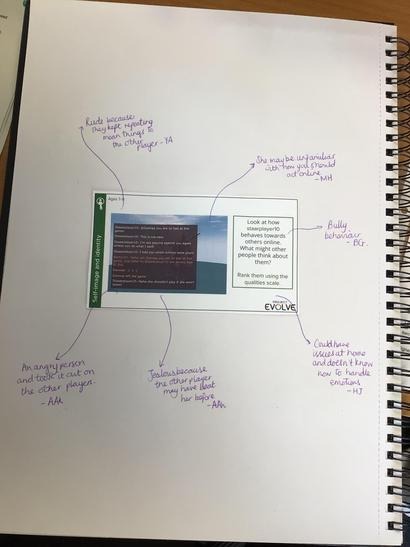 Rude because
they kept repeating
mean things to
the other
player - YA
She may be unfamiliar
with how you should
act online.
- MH
Ages 7-11
Self-image and identity
Look at how
starrplayer10
behaves towards
others online.
What might other
people think about
them?
Rank them using the
qualities scale.
PROJECT
EVOLVE
Bully
behaviour
- BG.
An angry person
and took it out on
the other players.
- AAk
Jealous because
the other player
may have beat
her before
- AAh
Could have
issues at home
and doesn't know
how to handle
emotions
- HJ